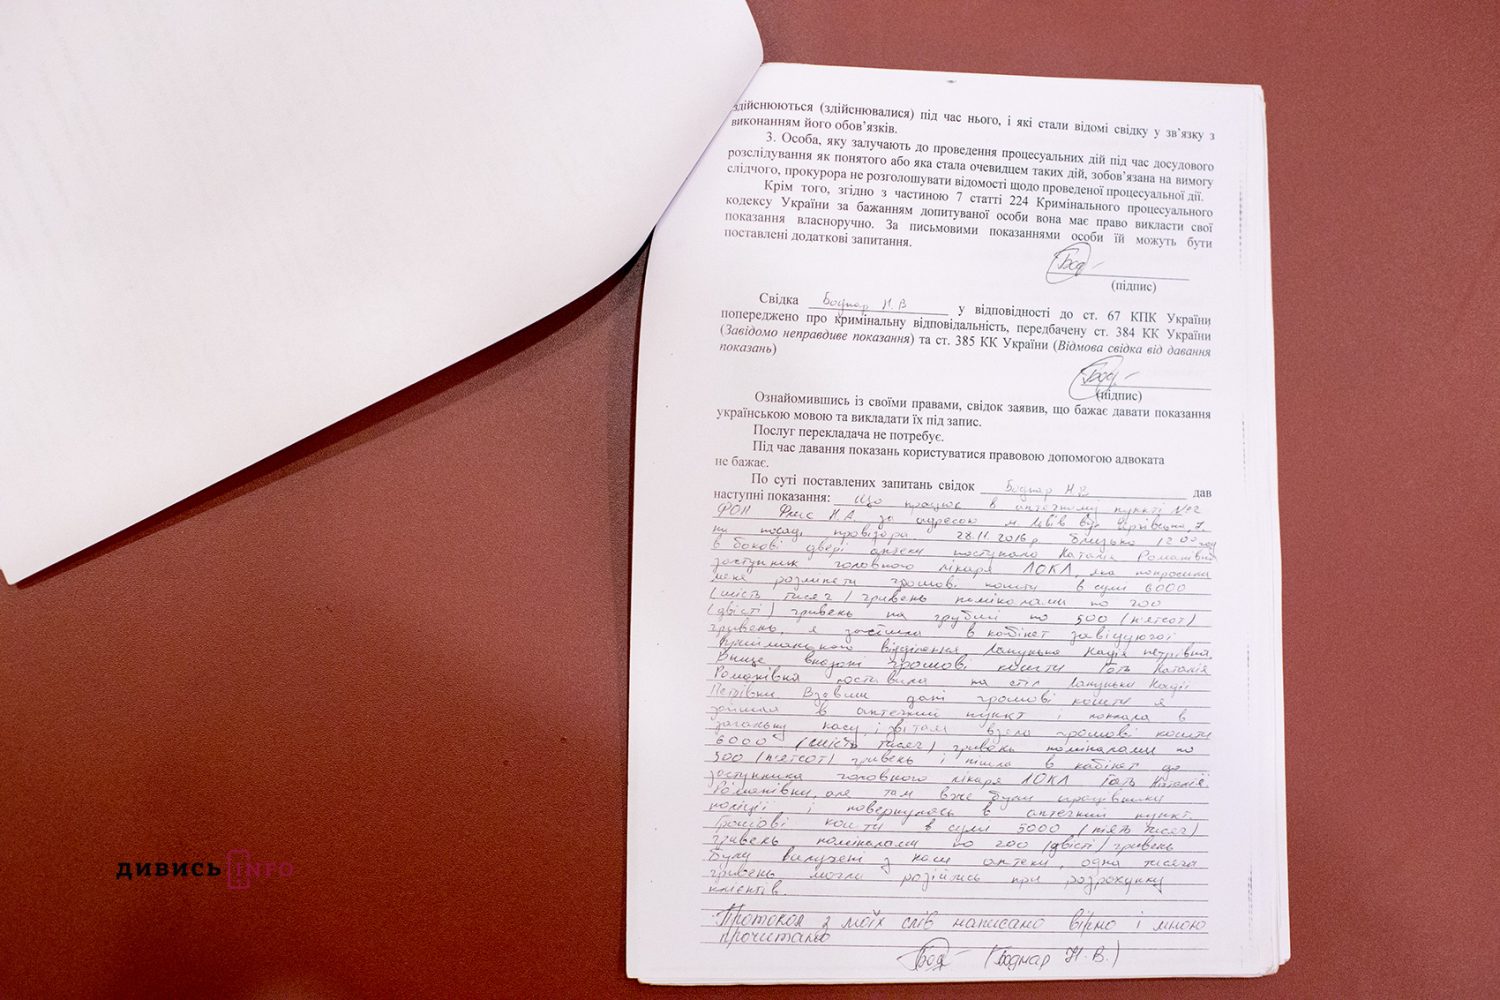 здійснюються (здійснювалися) під час нього, і які стали відомі свідку у зв’язку з
виконанням його обов’язків.
3. Особа, яку залучають до проведення процесуальних дій під час досудового
розслідування як понятого або яка стала очевидцем таких дій, зобов’язана на вимогу
слідчого, прокурора не розголошувати відомості щодо проведеної процесуальної дії.
Крім того, згідно з частиною 7 статті 224 Кримінального процесуального
кодексу України за бажанням допитуваної особи вона має право викласти свої
показання власноручно. За письмовими показаннями особи їй можуть бути
поставлені додаткові запитання.
Бод
(підпис)
Свідка Боднар Н.В у відповідності до ст. 67 КПК України
попереджено про кримінальну відповідальність, передбачену ст. 384 КК України
(Завідомо неправдиве показання) та ст. 385 КК України (Відмова свідка від давання
показань)
Бод
(підпис)
Ознайомившись із своїми правами, свідок заявив, що бажає давати показання
українською мовою та викладати їх під запис.
Послуг перекладача не потребує.
Під час давання показань користуватися правовою допомогою адвоката
не бажає.
По суті поставлених запитань свідок Боднар Н.В. дав
наступні показання: Що працює в аптечному пункті №2
ФОП Н.А. за адресою м. Львів вул.
на посаді провізора. 28.11.2016р близько 12 00 год
в бокові двері аптеки постукала Наталія Романівна
заступник головного лікаря ЛОКЛ, яка попросила
мене розміняти грошові кошти в сумі 6000
(шість тисяч) гривень номіналами по 200
(двісті) гривень на грубші по 500 (пятсот)
гривень, я зайшла в кабінет завідуючої
відділення, Надія Петрівна.
Вище вказані грошові кошти Гать Наталія
Романівна поставила на стіл Надії
Петрівни. Взявши дані грошові кошти я
зайшла в аптечний пункт і поклала в
загальну касу, і звітам взяла грошові кошти
6000 (шість тисяч) гривень номіналами по
500 (пятсот) гривень і пішла в кабінет до
заступника головного лікаря ЛОКЛ Гать Наталії
Романівни, але там вже були працівники
поліції, і повернулась в аптечний пункт.
Грошові кошти в сумі 5000 (пять тисяч)
гривень номіналами по 200 (двісті) гривень
були вилучені з каси аптеки, одна тисяча
гривень могли розійтись при розрахунку
клієнтів.
Протокол з моїх слів написано вірно і мною
прочитано
Бод (Боднар Н.В.)
ДИВИСЬ INFO